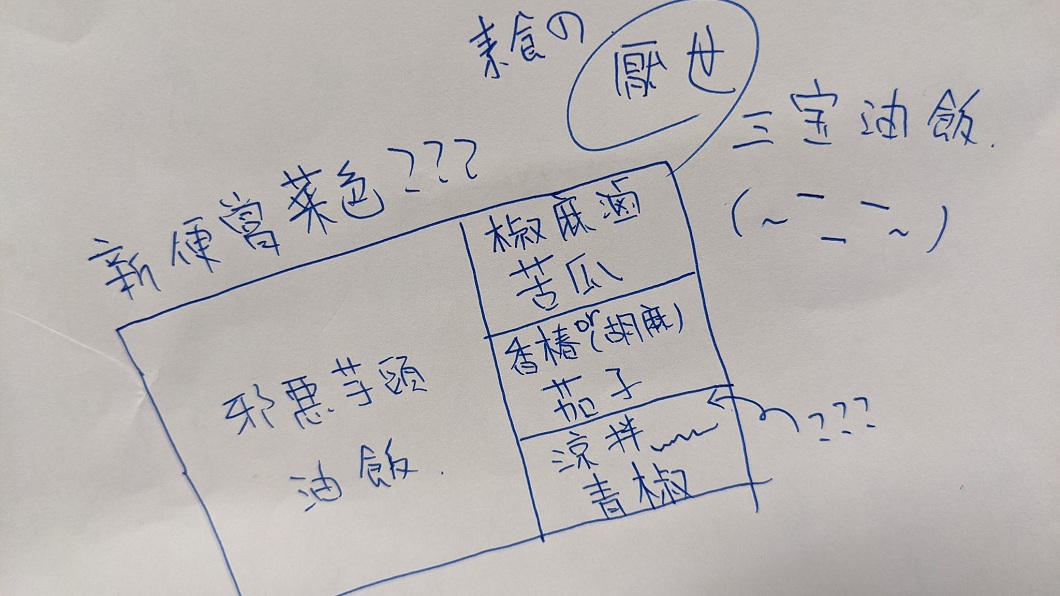 素食の厭世
三宝油飯.
新便當菜色???
椒麻滷
苦瓜
香椿or(胡麻)
茄子
涼拌
青椒
???
邪惡芋頭
油飯.